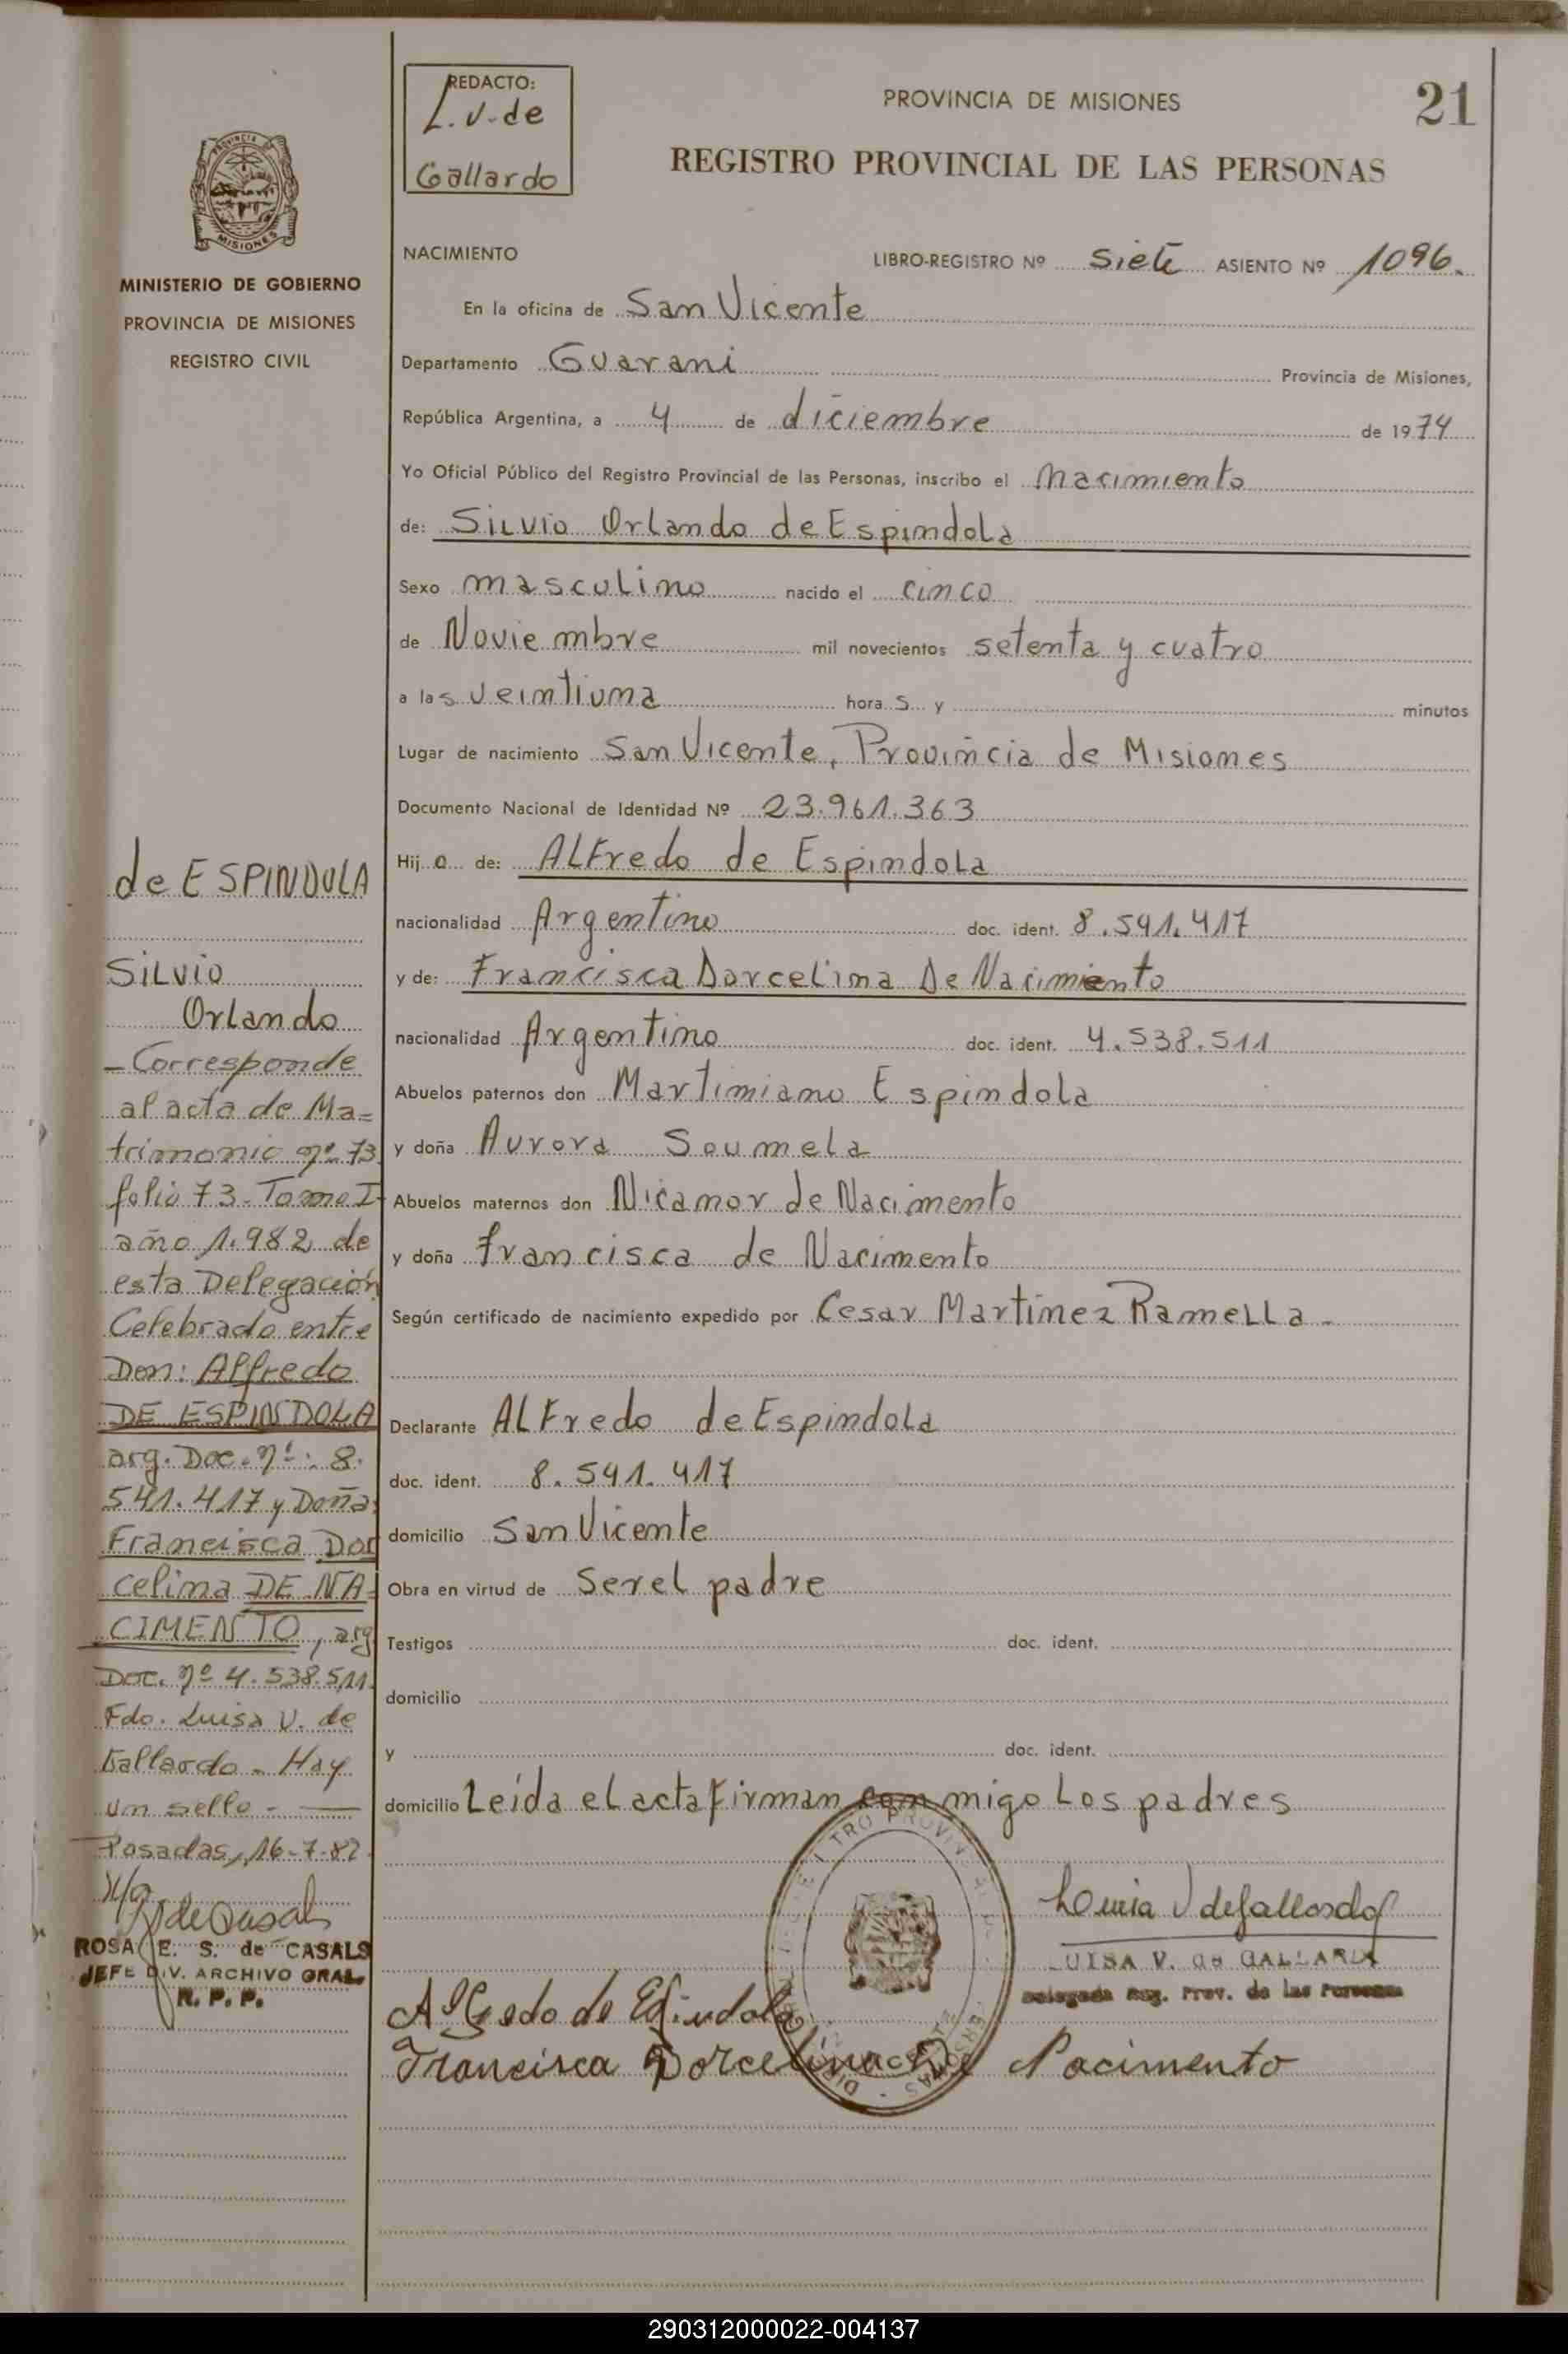 REDACTO:
L. V. de
Gallardo
PROVINCIA DE MISIONES
21
REGISTRO PROVINCIAL DE LAS PERSONAS
PROVINCIA
MISIONES
MINISTERIO DE GOBIERNO
PROVINCIA DE MISIONES
REGISTRO CIVIL
NACIMIENTO
LIBRO-REGISTRO Nº siete ASIENTO Nº 1096.
En la oficina de San Vicente
Departamento Guarani Provincia de Misiones,
República Argentina, a 4 de diciembre de 1974
Yo Oficial Público del Registro Provincial de las Personas, inscribo el Nacimiento
de: Silvio Orlando de Espindola
Sexo masculino nacido el cinco
de Noviembre mil novecientos setenta y cuatro
a las veintiuna horas y minutos
Lugar de nacimiento San Vicente, Provincia de Misiones
Documento Nacional de Identidad Nº 23.961.363
Hijo de: Alfredo de Espindola
nacionalidad Argentino doc. ident. 8.541.417
y de: Francisca Dorcelina De Nacimiento
nacionalidad Argentino doc. ident. 4.538.511
Abuelos paternos don Martimiano Espindola
y doña Aurora Soumela
Abuelos maternos don Nicamor de Nacimento
y doña Francisca de Nacimento
Según certificado de nacimiento expedido por Cesar Martinez Ramella.
Declarante Alfredo de Espindola
doc. ident. 8.541.417
domicilio San Vicente
Obra en virtud de Ser el padre
Testigos doc. ident.
domicilio
y doc. ident.
domicilio Leída el acta firman conmigo los padres
Luisa V de Gallardo
LUISA V. de GALLARDO
Delegada Reg. Prov. de las Personas
Alfredo de Espindola
Francisca Dorcelina De Nacimento
de ESPINDULA
Silvio
Orlando
- Corresponde
al acta de Ma=
trimonio nº 73
folio 73 - Tomo I
año 1.982 de
esta Delegación
Celebrado entre
Don: Alfredo
DE ESPINDOLA
arg. Doc. nº: 8.
541.417 y Doña
Francisca Dor
celina DE NA=
CIMENTO, arg
Doc. nº 4.538.511.
Fdo. Luisa V. de
Gallardo - Hay
un sello -
Posadas, 16-7-82
ROSA E. S. de CASALS
JEFE DIV. ARCHIVO GRAL.
R. P. P.
290312000022-004137